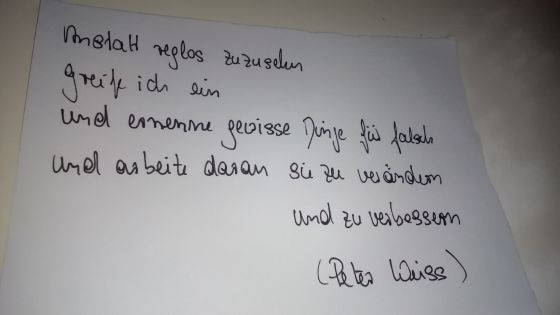 Anstatt reglos zuzusehn
greife ich ein
und ernenne gewisse Dinge für falsch
und arbeite daran sie zu verändern
und zu verbessern
(Peter Weiss)